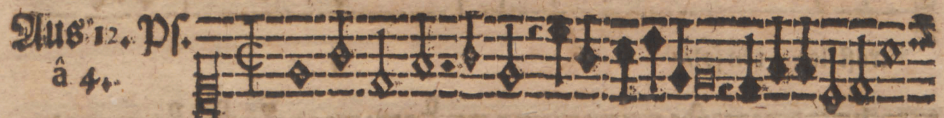 Aus 12. Pſ.
â 4.